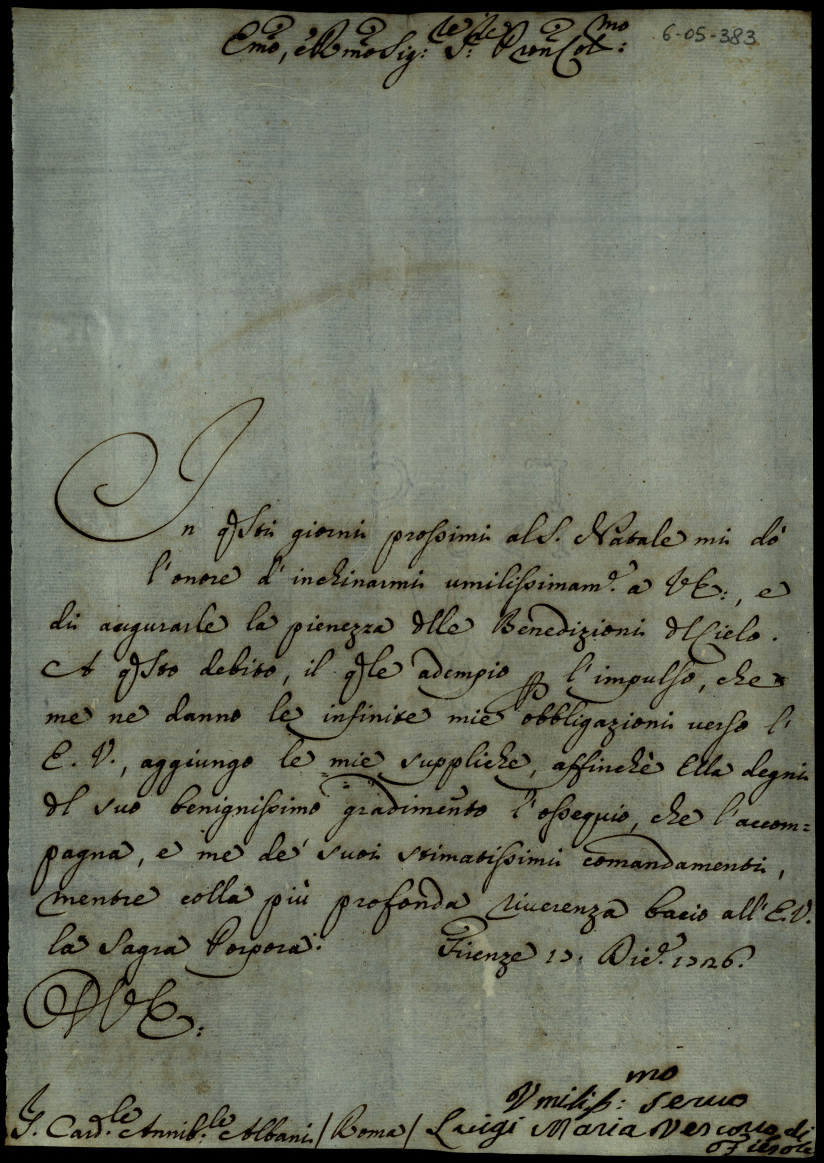 Emo, e Rmo Sig:re P:re Pron Col:mo
6-05-383
In qsti giorni prossimi al S. Natale mi dò
l'onore d'inchinarmi umilissimam.e a VE:, e
di augurarle la pienezza dlle Benedizioni dl Cielo.
A qsto debito, il qle adempio p l'impulso, che
me ne danno le infinite mie obbligazioni verso l'
E. V., aggiungo le mie suppliche, affinchè Ella degni
dl suo benignissimo gradimento l'ossequio, che l'accom=
pagna, e me de' suoi stimatissimi comandamenti,
mentre colla più profonda riverenza bacio all'E.V.
la Sagra Porpora. Firenze 17: Dic.e 1726.
DVE:
Umiliss:mo Servo
S. Card.le Annib.le Albani / Roma / Luigi Maria Vescovo di
Fiesole